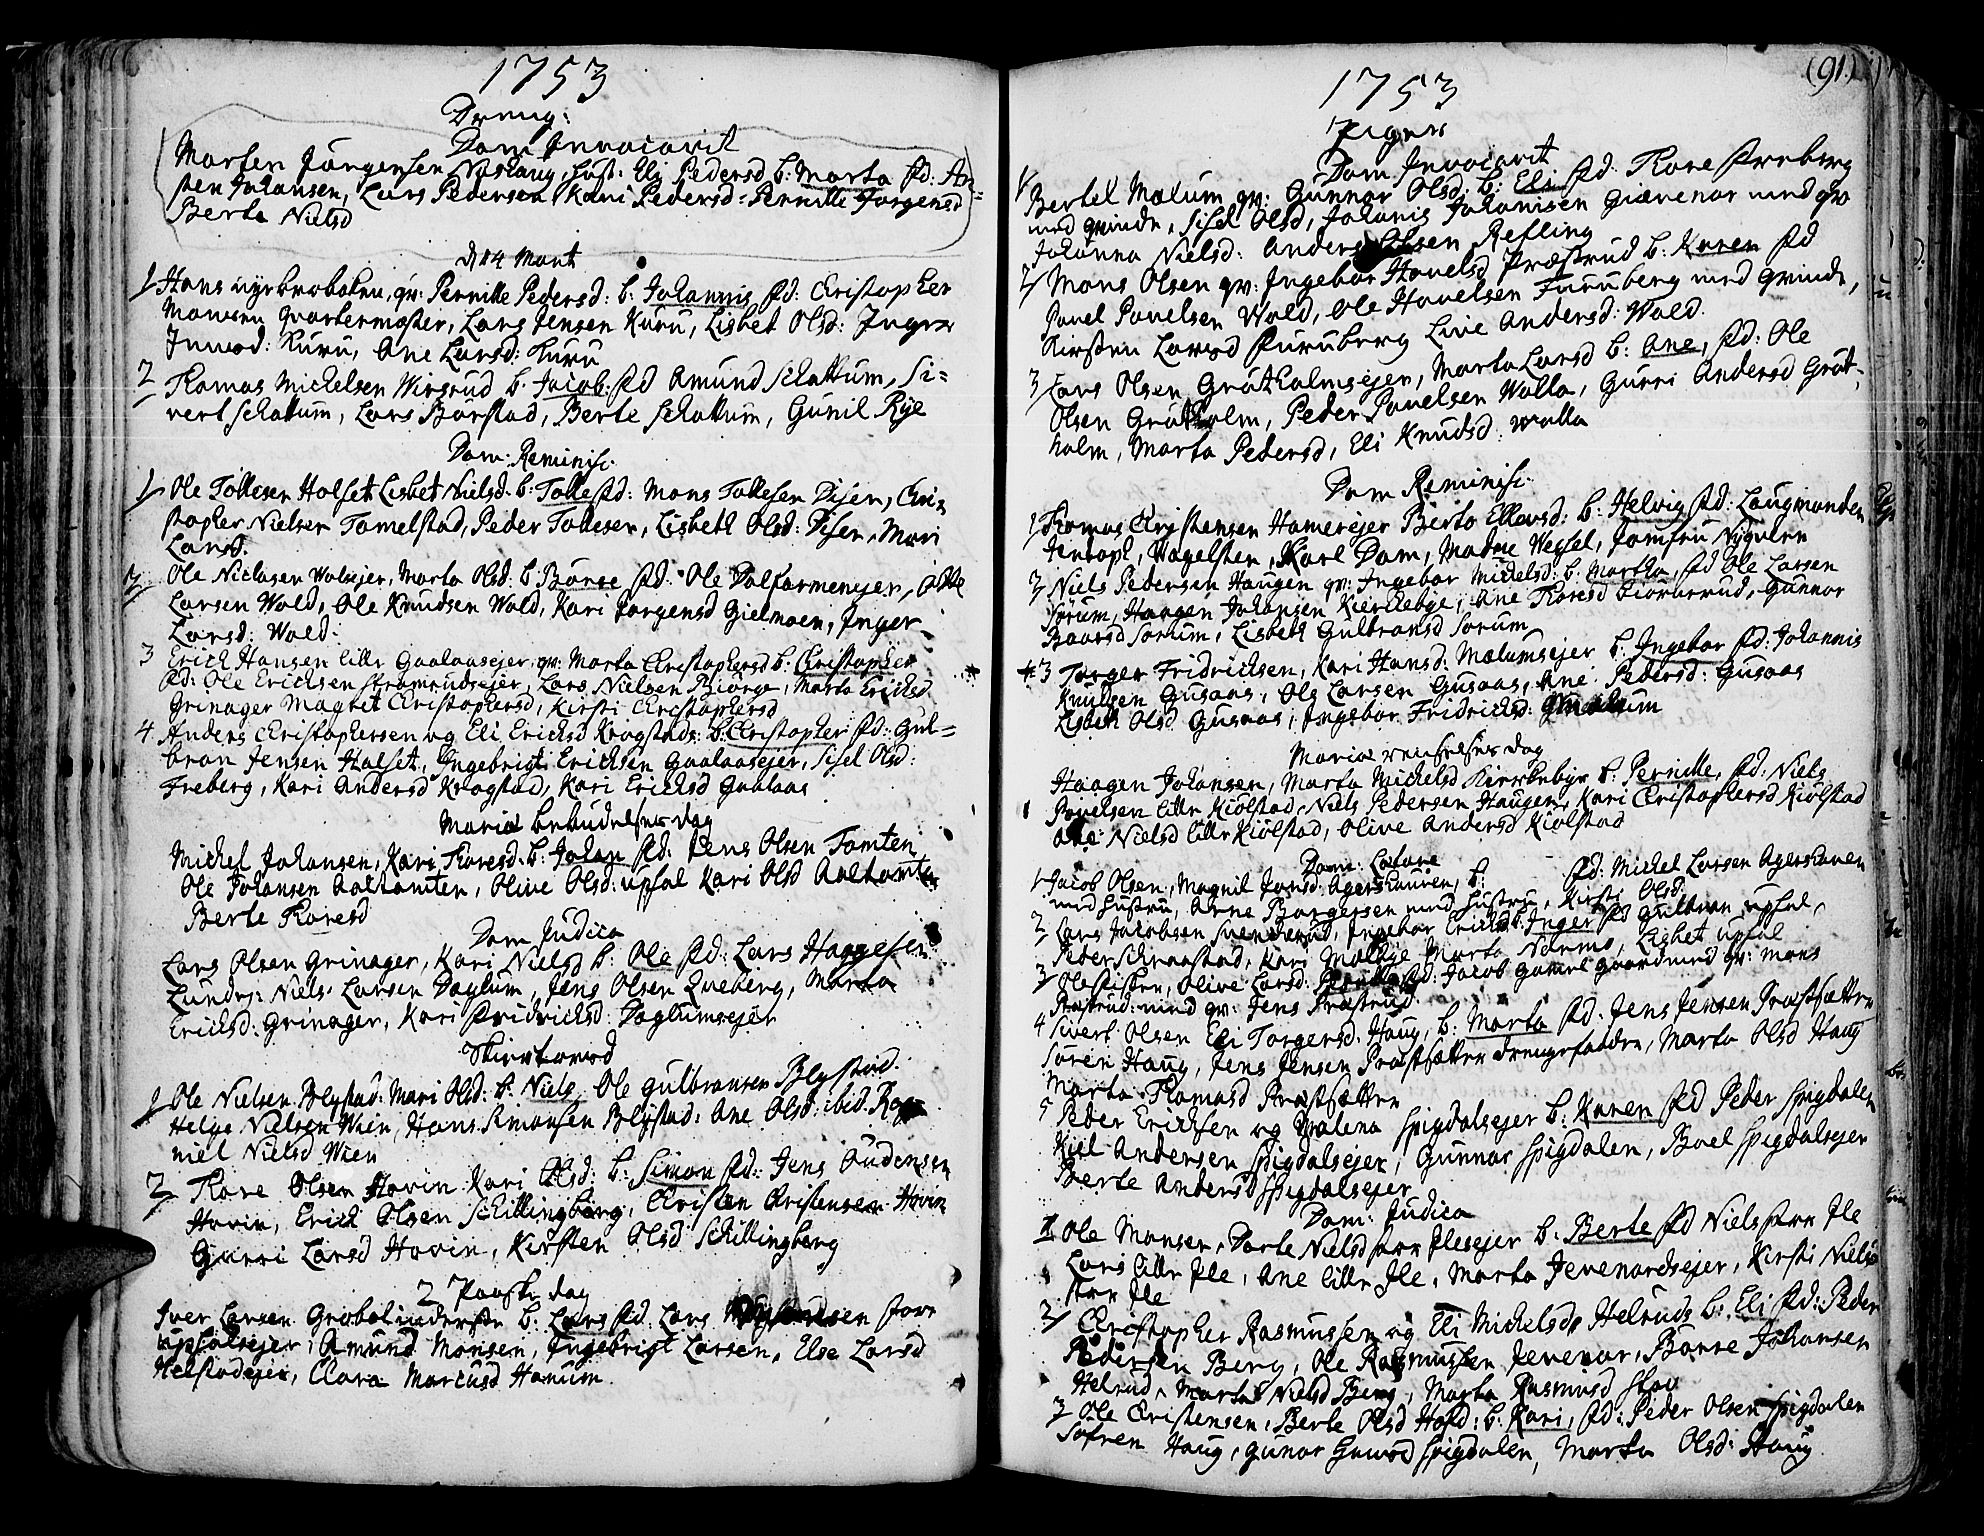 1753
Dreng:
Dom Invocavit
Morten Jørgensen Nashaug, hust: Eli Pedersd b: Marta fd: An=
sten Johansen, Lars Pedersen, Kari Pedersd: Pernille Jorgensd
Berte Nielsd
d 14 Mart
1 Hans Nyebrobaken, qv: Pernille Pedersd: b: Johannis fd: Christopher
Monsen Quartermester, Lars Jensen Kuru, Lisbet Olsd: Inger
Kuru, Ane Larsd: Kuru
2 Thomas Michelsen Wirsrud b. Jacob. fd Amund Schattum, Si=
vert Schattum, Lars Børstad, Berte Schattum, Gunil Rye
Dom: Reminisc.
1 Ole Tollesen Holset Lisbet Nielsd. b: Tolle fd: Mons Tollesen Disen, Chri=
stopher Nielsen Tomelstad, Peder Tollesen, Lisbeth Olsd: Disen, Mari
Larsd.
2 Ole Niclasen Wolsejer, Marta Olsd: b: Børre fd. Ole Dalfarmenejer, Olle
Larsen Wold, Ole Knudsen Wold, Kari Jorgensd Gielmoen, Inger
Larsd: Wold.
3 Erich Hansen lille Gaalaasejer, qv: Marta Christophersd b: Christopher
fd: Ole Erichsen Stromrudsejer, Lars Nielsen Biørge, Marta Erichsd
Grinager Magnet Christophersd, Kirsti Christophersd
4 Anders Christophersen og Eli Erichsd Krogstad: b: Christopher fd: Gul=
bran Jensen Holset, Ingebrigt Erichsen Gaalaasejer, Sisel Olsd:
Freberg, Kari Andersd Krogstad, Kari Erichsd Gaalaas
Mariæ bebudelses dag
Michel Johansen, Kari Thoresd. b: Johan fd: Jens Olsen Tomten
Ole Johansen Aaltomten, Olive Olsd: upsal Kari Olsd Aaltomten
Berte Thoresd
Dom Judica
Lars Olsen Grinager, Kari Nielsd b: Ole fd: Lars Haagesen
Lunde: Niels Larsen Daglum, Jens Olsen Queberg, Marta
Erichsd: Grinager, Kari Fridrichsd: Daglumsejer
Skiertorsd
1 Ole Nielsen Blystad: Mari Olsd: b: Niels, Ole Gulbransen Blystad.
Helge Nielsen Wien, Hans Simonsen Blystad: Ane Olsd: ibid. Rag=
niel Nielsd Wien
2 Thore Olsen Hovin Kari Olsd: b: Simon fd: Jens Audensen
Hovin, Erich Olsen Schillingberg, Christen Christensen Hovin
Gurri Larsd Hovin, Kirsten Olsd Schillingberg
2 Paaske dag
Iver Larsen Grøbol inderste b: Lars fd. Lars store
upsalsejer, Amund Monsen, Ingebrigt Larsen, Else Larsd
Helstadejer, Clara Marcusd Hommum.
(91)
1753
Piger
Dom Invocavit
1 Bertel Mælum qv: Gunnor Olsd. b: Eli fd. Thore Freberg
med qvinde, Sisel Olsd, Johanis Johansen Giævenor med qv
Johanna Nielsd: Anders Olsen Refling
2 Mons Olsen qv: Ingebor Hovelsd Præstrud b: Karen fd
Povel Povelsen Wold, Ole Hovelsen Furuberg med qvinde,
Kirsten Larsd Furuberg Live Andersd: Wold.
3 Lars Olsen Grøtholmsejer, Marta Larsd b: Ane, fd: Ole
Olsen Grøtholm, Peder Povelsen Walla, Gurri Andersd Grøt-
holm, Marta Pedersd, Eli Knudsd: Walla
Dom Reminisc.
1 Thomas Christensen Hamerejer Berte Ellevsd: b: Helvig fd: Laugmanden
Jentoph, Wogelsten, Karl Dom, Madme Wessel, Jomfru Nygulen
2 Niels Pedersen Haugen qv: Ingebor Michelsd: b: Martha, fd Ole Larsen
Sørum, Haagen Johansen Kierchebye, Ane Thoresd Biørnerud, Gunnor
Baarsd Sorum, Lisbeth Gulbransd Sorum
3 Torger Fridrichsen, Kari Hansd: Mælumsejer b: Ingebor fd: Johannis
Knudsen Gusaas, Ole Larsen Gusaas, Ane Pedersd: Gusaas
Lisbeth Olsd Gusaas, Ingebor Fridrichsd:
Mariæ renselses dag
Haagen Johansen, Marta Michelsd Kirchebye b: Pernille, fd: Niels
1 Povelsen lille Kiolstad, Niels Pedersen Haugen, Kari Christophersd Kiolstad
Ane Nielsd lille Kiolstad, Olive Andersd Kiolstad
Dom: Lætare
1 Jacob Olsen, Magnil Jonsd: Agershauven, b: fd: Michel Larsen Agershauven
med hustru, Arne Borgersen med hustru, Kirsti Olsd:
2 Lars Jakobsen Svenderud, Ingebor Erichsd b: Inger fd Gulbran upsal,
Peder Schraastad, Kari Melbye Marta Narmo, Lisbet upsal
3 Ole Olive Larsd: Pernille fd: Jacob Gamle Gaard med qv: Mons
Præstrud: med qv: Jens Præstrud
4 Sivert Olsen Eli Torgersd. Haug, b: Marta fd: Jens Jensen Præstsætter
Søren Haug, Jens Jensen Præstsætter drengefadder, Marta Olsd Haug
Marta Thomasd Præstsætter
5 Peder Erichsen og Malena Spigdalsejer b: Karen fd Peder Spigdalen
Kiel Andersen Spigdalsejer, Gunnor Spigdalen, Boel Spigdalsejer
Berte Andersd Spigdalsejer
Dom: Judica
1 Ole Monsen, Dorte Nielsd store Ilesejer b: Berte fd Niels store Ile
Lars lille Ile, Ane lille Ile, Marta Jevenordsejer, Kirsti Nielsd
store Ile
2 Christopher Rasmussen og Eli Michelsd Helrud: b: Eli fd: Peder
Pedersen Berg, Ole Rasmussen Jevenor, Børre Johansen
Helrud, Marta Nielsd Berg, Marta Rasmusd Skou
3 Ole Christensen, Berte Olsd Hofd: b: Kari, fd: Peder Olsen Spigdalen
Søfren Haug, Gunor Spigdalen, Marta Olsd: Haug